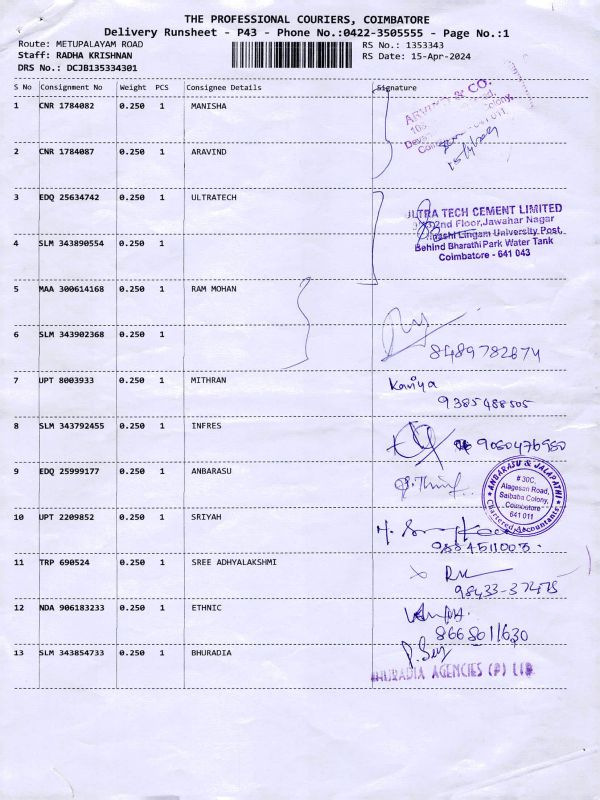 THE PROFESSIONAL COURIERS, COIMBATORE
Delivery Runsheet - P43 - Phone No.:0422-3505555 - Page No.:1
Route: METUPALAYAM ROAD RS No.: 1353343
Staff: RADHA KRISHNAN RS Date: 15-Apr-2024
DRS No.: DCJB135334301
S No Consignment No Weight PCS Consignee Details Signature
1 CNR 1784082 0.250 1 MANISHA
ARVIND & CO.
15/4/2024
2 CNR 1784087 0.250 1 ARAVIND
3 EDQ 25634742 0.250 1 ULTRATECH
ULTRA TECH CEMENT LIMITED
2nd Floor, Jawahar Nagar
Lingam University Post,
Behind Bharathi Park Water Tank
Coimbatore - 641 043
4 SLM 343890554 0.250 1
5 MAA 300614168 0.250 1 RAM MOHAN
6 SLM 343902368 0.250 1
8489782674
7 UPT 8003933 0.250 1 MITHRAN Kaviya
9385488505
8 SLM 343792455 0.250 1 INFRES
9080476980
9 EDQ 25999177 0.250 1 ANBARASU
ANBARASU & JALAPATHI
# 30C,
Alagesan Road,
Saibaba Colony,
Coimbatore
641 011
Chartered Accountants
10 UPT 2209852 0.250 1 SRIYAH
11 TRP 690524 0.250 1 SREE ADHYALAKSHMI
98433-37475
12 NDA 906183233 0.250 1 ETHNIC
8668011630
13 SLM 343854733 0.250 1 BHURADIA
BHURADIA AGENCIES (P) LTD